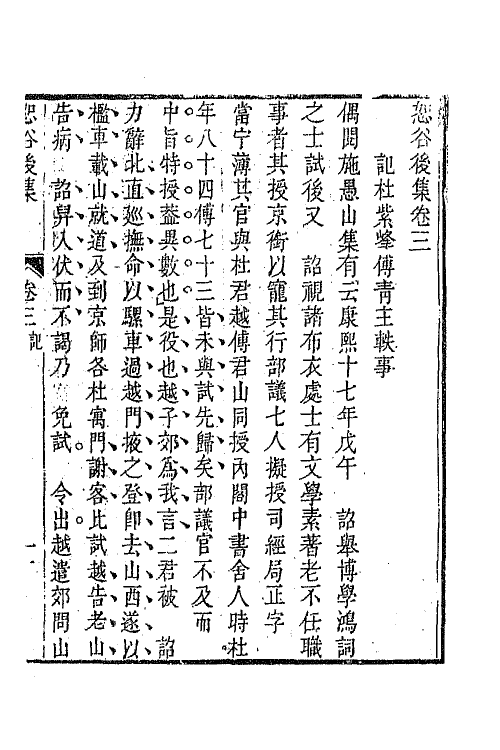 恕谷後集卷三
記杜紫峰傅青主軼事
偶閱施愚山集有云康熙十七年戊午　詔舉博學鴻詞
之士試後又　詔視諸布衣處士有文學素著老不任職
事者其授京銜以寵其行部議七人擬授司經局正字
當宁薄其官與杜君越傅君山同授內閣中書舍人時杜
年八十四傅七十三皆未與試先歸矣部議官不及而
中旨特授葢異數也是役也越子郊為我言二君被　詔
力辭北直廵撫命以騾車過越門掖之登卽去山西遂以
檻車載山就道及到京師各杜寓門謝客比試越告老山
告病　詔舁入伏而不謁乃　免試　令出越遣郊問山
恕谷後集　卷三　記　一